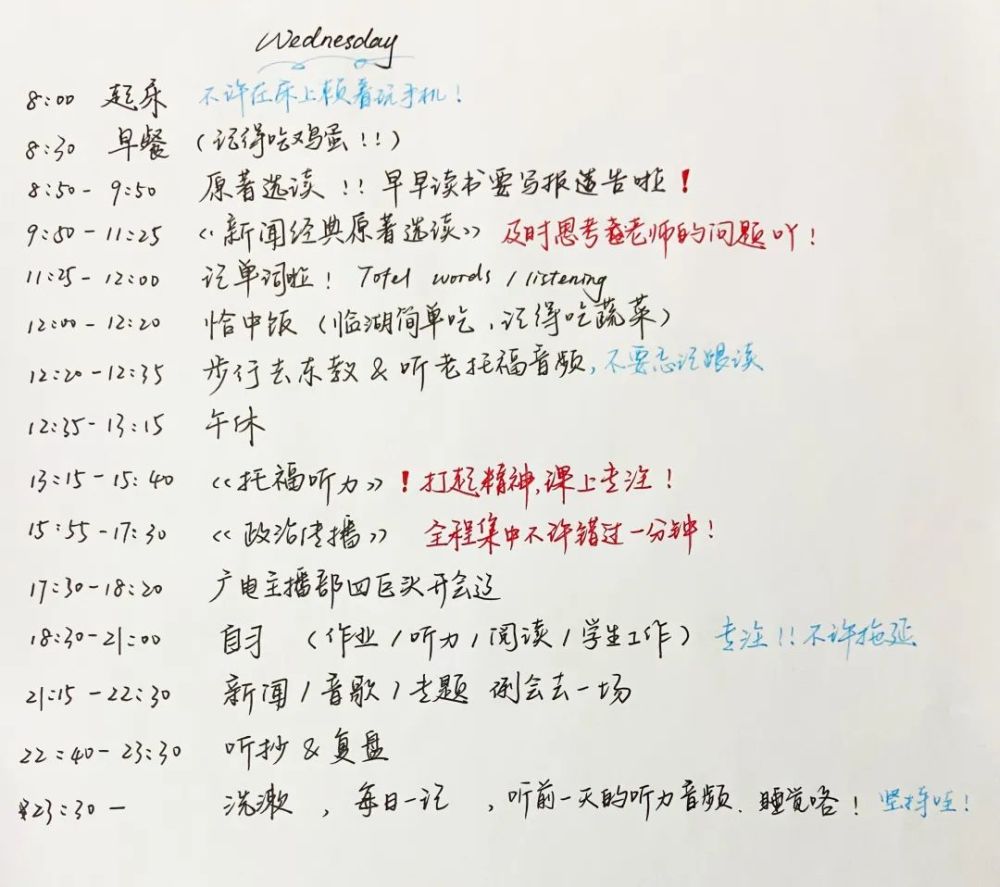 Wednesday
8:00 起床 不许在床上赖着玩手机！
8:30 早餐 （记得吃鸡蛋！！）
8:50-9:50 原著选读！！早早读书要写报告啦！
9:50-11:25 《新闻经典原著选读》 及时思考老师的问题吖！
11:25-12:00 记单词啦！Tofel words / listening
12:00-12:20 恰中饭（临湖简单吃，记得吃蔬菜）
12:20-12:35 步行去东教 & 听老托福音频，不要忘记跟读
12:35-13:15 午休
13:15-15:40 《托福听力》！打起精神，课上专注！
15:55-17:30 《政治传播》 全程集中不许错过一分钟！
17:30-18:20 广电主播部四巨头开会辽
18:30-21:00 自习 （作业/听力/阅读/学生工作） 专注！！不许拖延
21:15-22:30 新闻/音歌/专题 例会去一场
22:40-23:30 听抄 & 复盘
*23:30- 洗漱，每日一记，听前一天的听力音频、睡觉咯！ 坚持哇！